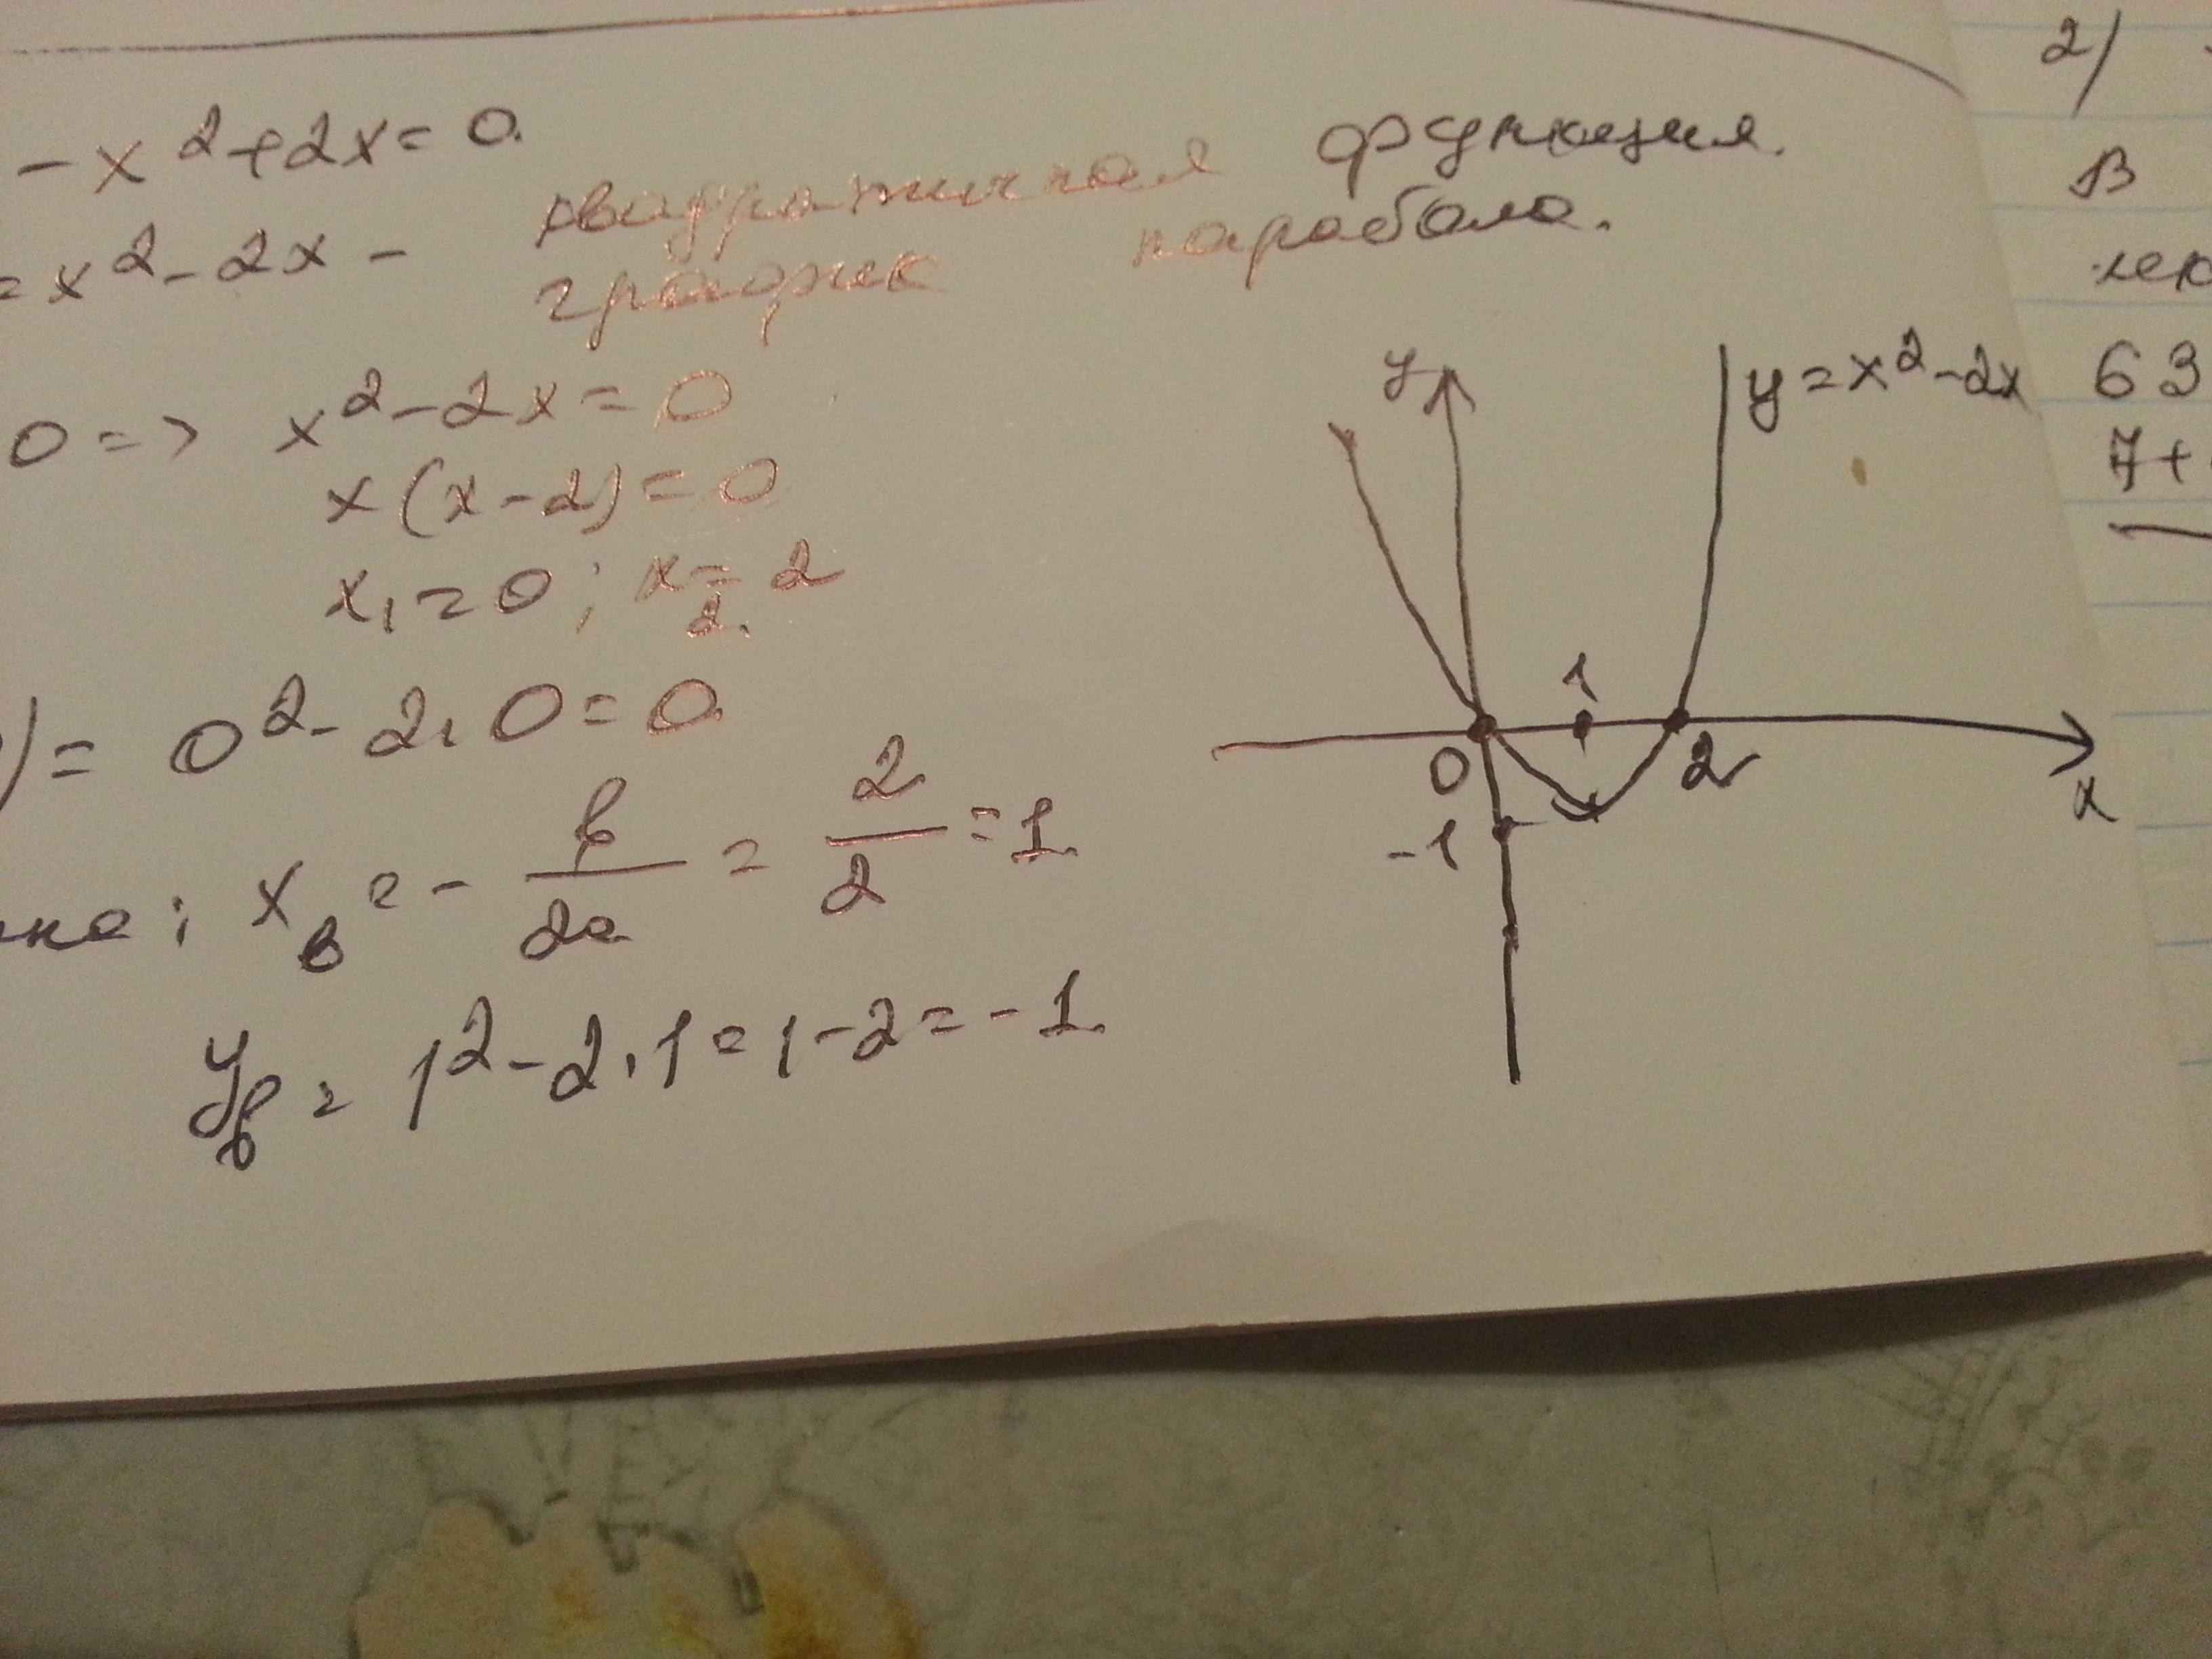 - x² + 2x = 0.
= x² - 2x - квадратичная функция.
график парабола.
0 => x² - 2x = 0
x (x - 2) = 0
x₁ = 0 ; x₂ = 2
) = 0² - 2 · 0 = 0.
на : xв = - в/2a = 2/2 = 1.
yв = 1² - 2 · 1 = 1 - 2 = -1.
y
y = x² - 2x
1
0
2
x
-1
2)
В
63
7+